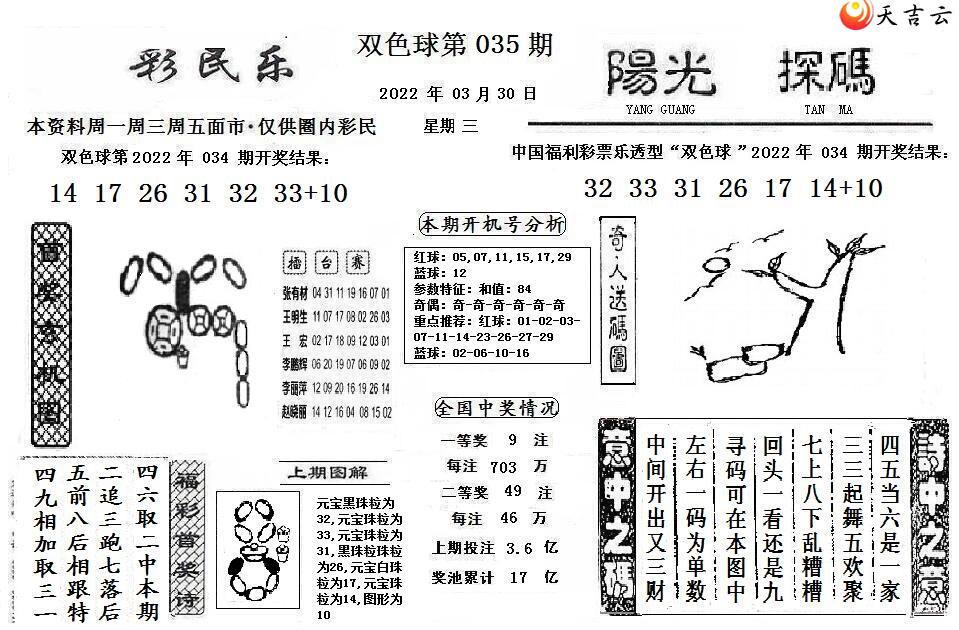 天吉云
彩民乐
双色球第 035 期
2022 年 03 月 30 日
星期 三
本资料周一周三周五面市·仅供圈内彩民
双色球第2022 年 034 期开奖结果：
14 17 26 31 32 33+10
陽光 探碼
YANG GUANG TAN MA
中国福利彩票乐透型“双色球 ”2022 年 034 期开奖结果：
32 33 31 26 17 14+10
擂台赛
张有材 04 31 11 19 16 07 01
王明生 11 07 17 08 02 26 03
王 宏 02 17 18 09 12 03 01
李鹏辉 06 20 19 07 06 09 02
李丽萍 12 09 20 16 19 26 14
赵晓丽 14 12 16 04 08 15 02
本期开机号分析
红球：05,07,11,15,17,29
蓝球：12
参数特征：和值：84
奇偶：奇-奇-奇-奇-奇-奇
重点推荐：红球：01-02-03-
07-11-14-23-26-27-29
蓝球：02-06-10-16
奇·人送碼圖
全国中奖情况
一等奖 9 注
每注 703 万
二等奖 49 注
每注 46 万
上期投注 3.6 亿
奖池累计 17 亿
福彩首奖诗
四六取二中本期
二追三跑七落后
五前八后相跟特
四九相加取三一
上期图解
元宝黑珠粒为
32,元宝珠粒为
33,元宝珠粒为
31,黑珠粒珠粒
为26,元宝白珠
粒为17,元宝珠
粒为14,图形为
10
四五当六是一家
三三起舞五欢聚
七上八下乱糟糟
回头一看还是九
寻码可在本图中
左右一码为单数
中间开出又三财